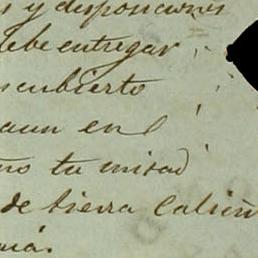 s y disposiciones
debe entregar
ncubierto
aun en
no tu mitad
de tierra Calien
mia.